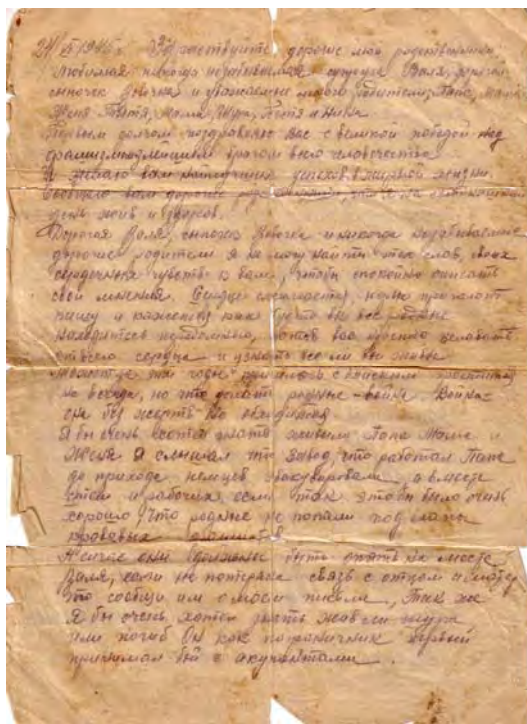 24/VI 1945г. Здравствуйте дорогие мои родственники
Любимая никогда незабываемая супруга Валя, дорогой
сыночек Вовочка и уважаемые много родители: Папа, Мама
Женя Тётя, Мама, Шура, Петя и Нина
Первым долгом поздравляю Вас с великой победой над
врагом всего человечества
И желаю вам наилучших успехов в мирной жизни.
Сообщаю вам дорогие что я на
день жив и здоров.
Дорогая Валя, сыночек Вовочка и никогда незабываемые
дорогие родители я не могу найти тех слов, своих
сердечных чувств к вам, чтобы спокойно описать
свои мнения. Сердце сжимается,
пищу и кажется, как будто вы все родные
находитесь хотел вас крепко целовать
от всего сердца и узнать все ли вы живы
эти годы с близкими
на всегда, но что делать родные - война. Война-
она без жертв не обходится
Я бы очень хотел знать живы ли Папа Мама и
Женя Я слышал что завод, что работал Папа
до прихода немцев эвакуировали, а вместе
с тем и рабочих если так это бы было очень
хорошо, что родные не попали под лапы
кровавых
А сичас они должны быть опять на месте
Валя, если не потеряна связь с отцом и матерью
то сообщи им о моем письме, Так же
Я бы очень хотел знать жив ли Шура
или погиб Он как пограничник первый
принимал бой с окупантами.